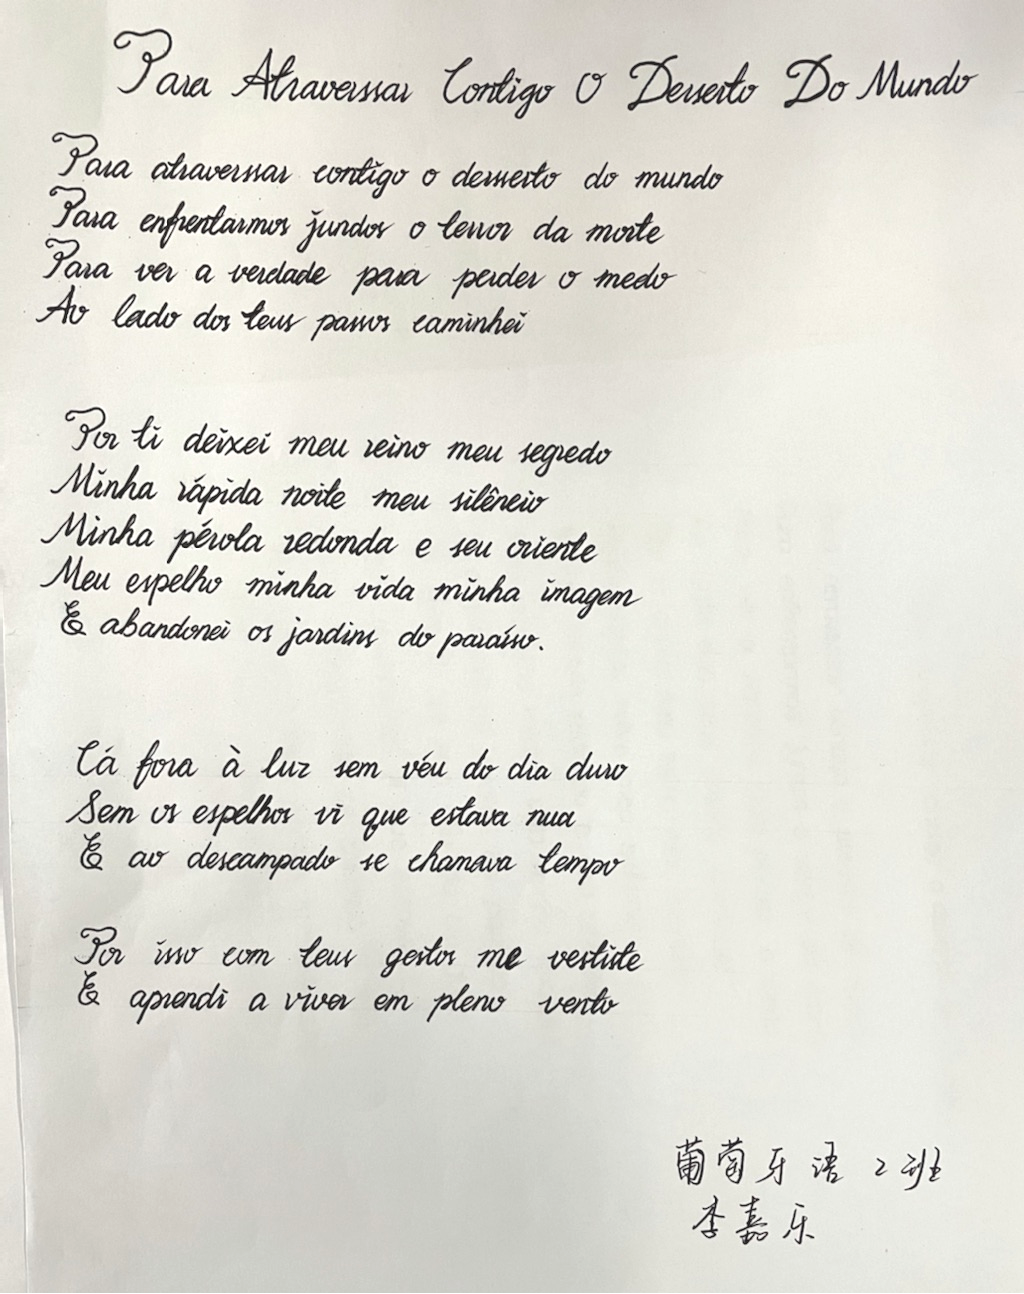 Para Atraverssar Contigo O Desserto Do Mundo
Para atraverssar contigo o desserto do mundo
Para enfrentarmos jundos o terror da morte
Para ver a verdade para perder o medo
Ao lado dos teus passos caminhei
Por ti deixei meu reino meu segredo
Minha rápida noite meu silêncio
Minha pérola redonda e seu oriente
Meu espelho minha vida minha imagem
E abandonei os jardins do paraíso.
Cá fora à luz sem véu do dia duro
Sem os espelhos vi que estava nua
E ao descampado se chamava tempo
Por isso com teus gestos me vestiste
E aprendi a viver em pleno vento
葡萄牙语2班
李嘉乐